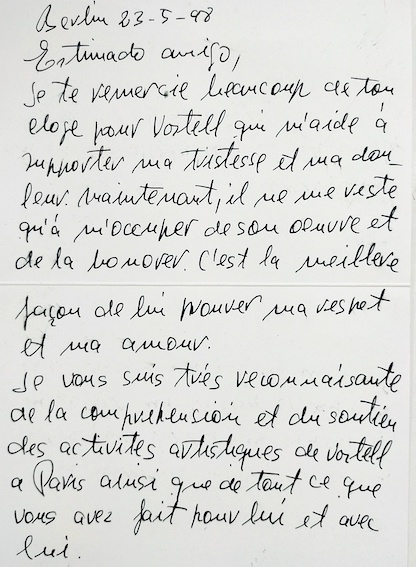 Berlin 23-5-98
Estimado amigo,
Je te remercie beaucoup de ton
eloge pour Vostell qui m'aide à
supporter ma tristesse et ma dou-
leur. Maintenant, il ne me reste
qu'à m'occuper de son oeuvre et
de la honorer. C'est la meillere
façon de lui prouver ma respet
et ma amour.
Je vous suis très reconnaisante
de la comprehension et du soutien
des activites artistiques de Vostell
a Paris ainsi que de tout ce que
vous avez fait pour lui et avec
lui.